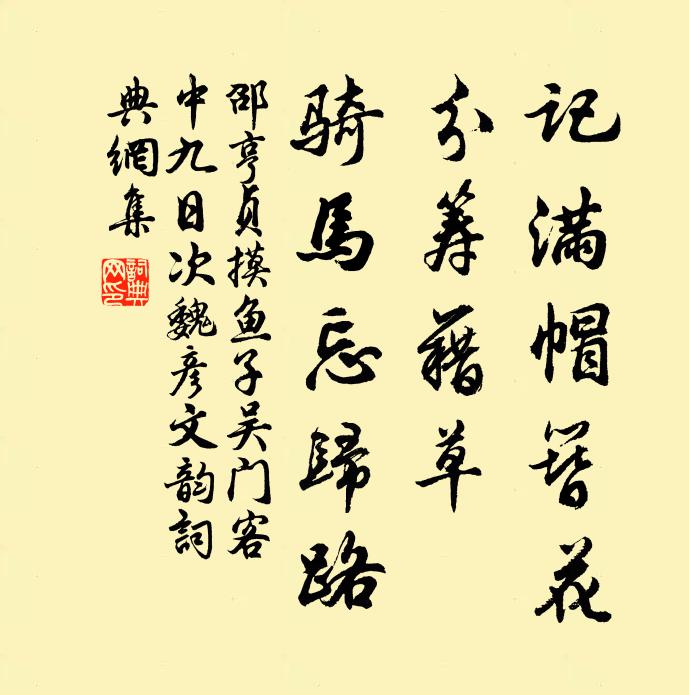 记满帽簪花
分筹藉草
骑马忘歸路
邵亨贞摸鱼子吴门客
中九日次魏彦文韵詞
典網集
詞典
网印